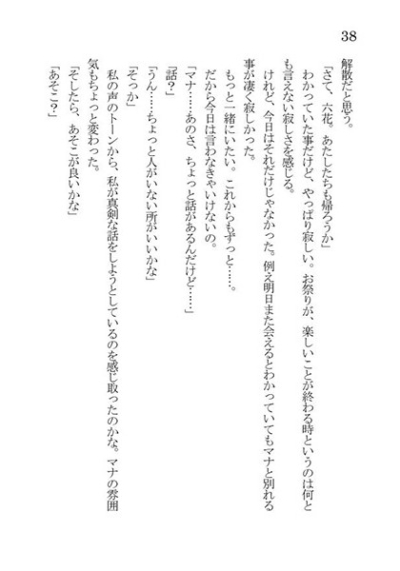 38
解散だと思う。
「さて、六花。あたしたちも帰ろうか」
わかっていた事だけど、やっぱり寂しい。お祭りが、楽しいことが終わる時というのは何と
も言えない寂しさを感じる。
けれど、今日はそれだけじゃなかった。例え明日また会えるとわかっていてもマナと別れる
事が凄く寂しかった。
もっと一緒にいたい。これからもずっと……。
だから今日は言わなきゃいけないの。
「マナ……あのさ、ちょっと話があるんだけど……」
「話？」
「うん……ちょっと人がいない所がいいかな」
「そっか」
私の声のトーンから、私が真剣な話をしようとしているのを感じ取ったのかな。マナの雰囲
気もちょっと変わった。
「そしたら、あそこが良いかな」
「あそこ？」